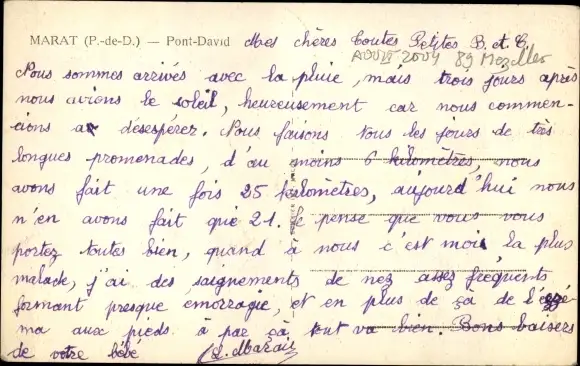 MARAT (P.-de-D.) — Pont-David Mes chères Toutes Petites B. et C.
AOUT 2004 89
Nous sommes arrivés avec la pluie, mais trois jours après
nous avions le soleil, heureusement car nous commen-
cions a désespérez. Nous faisons tous les jours de très
longues promenades, d'au moins 6 kilomètres, nous
avons fait une fois 25 kilomètres, aujourd'hui nous
n'en avons fait que 21. Je pense que vous vous
portez toutes bien, quand à nous c'est moi la plus
malade, j'ai des saignements de nez assez fréquents
formant presque emorragie, et en plus de ça de l'exzé
ma aux pieds à par çà tout va bien. Bons baisers
de votre bébé